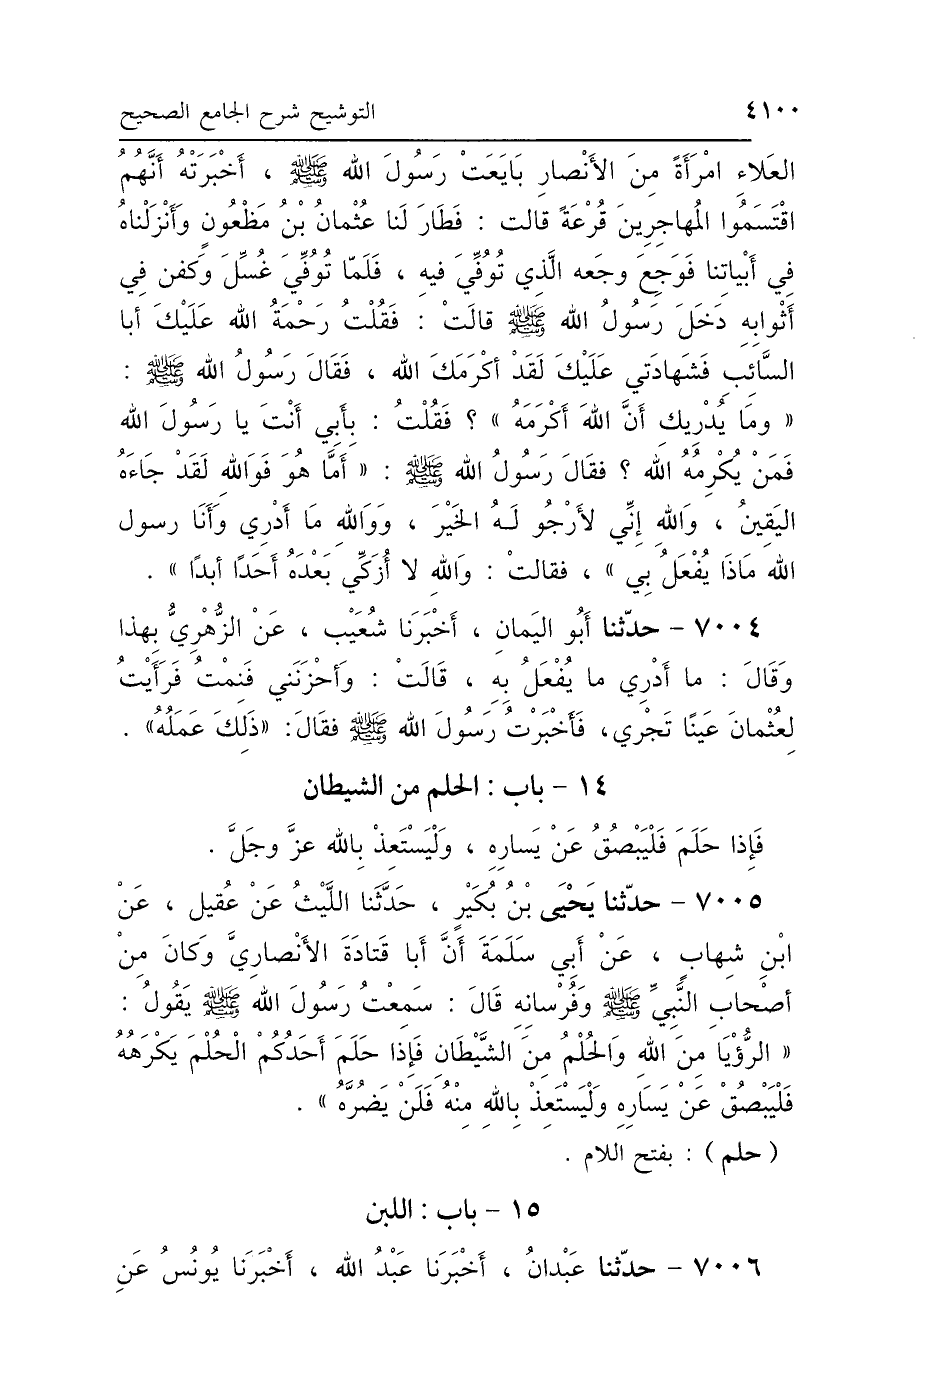 ٤١٠٠ التوشيح شرح الجامع الصحيح
العَلاءِ امْرَأَةً مِنَ الأَنْصارِ بَايَعَتْ رَسُولَ الله ﷺ ، أَخْبَرَتْهُ أَنَّهُمُ
اقْتَسَمُوا الْمُهاجِرِينَ قُرْعَةً قالت : فَطَارَ لَنا عُثْمانُ بْنُ مَظْعُونٍ وَأَنْزَلْناهُ
فِي أَبْياتِنا فَوَجِعَ وجَعه الَّذي تُوُفِّيَ فيه ، فَلَمّا تُوُفِّيَ غُسِّلَ وَكفن فِي
أَثْوابِهِ دَخَلَ رَسُولُ الله ﷺ قالَتْ : فَقُلْتُ رَحْمَةُ الله عَلَيْكَ أبا
السَّائِبِ فَشَهادَتي عَلَيْكَ لَقَدْ أكْرَمَكَ الله ، فَقَالَ رَسُولُ الله ﷺ :
« ومَا يُدْرِيك أَنَّ اللهَ أَكْرَمَهُ » ؟ فَقُلْتُ : بِأَبي أَنْتَ يا رَسُولَ الله
فَمَنْ يُكْرِمُهُ الله ؟ فقَالَ رَسُولُ الله ﷺ : « أَمَّا هُوَ فَوَاللهِ لَقَدْ جَاءَهُ
اليَقِينُ ، وَاللهِ إنِّي لأَرْجُو لَـهُ الخَيْرَ ، وَوَاللهِ مَا أَدْرِي وَأَنَا رسول
الله مَاذَا يُفْعَلُ بِي » ، فقالتْ : وَاللهِ لا أُزَكِّي بَعْدَهُ أَحَدًا أبدًا » .
٧٠٠٤ – حدّثنا أَبُو اليَمانِ ، أَخْبَرَنا شُعَيْب ، عَنْ الزُّهْرِيُّ بِهذا
وَقَالَ : ما أَدْرِي ما يُفْعَلُ بِهِ ، قَالَتْ : وَأَحْزَنَني فَنِمْتُ فَرَأَيْتُ
لِعُثْمانَ عَينًا تَجْري، فَأَخْبَرْتُ رَسُولَ الله ﷺ فقَالَ: «ذَلِكَ عَمَلُهُ» .
١٤ – باب : الحلم من الشيطان
فَإذا حَلَمَ فَلْيَبْصُقُ عَنْ يَسارِهِ ، وَلْيَسْتَعِذْ بالله عزَّ وجَلَّ .
٧٠٠٥ – حدّثنا يَحْيَى بْنُ بُكَيْرٍ ، حَدَّثَنا اللَّيْثُ عَنْ عُقيل ، عَنْ
ابْنِ شهابٍ ، عَنْ أَبِي سَلَمَةَ أَنَّ أَبا قَتادَةَ الأَنْصاريَّ وَكَانَ مِنْ
أصْحابِ النَّبيِّ ﷺ وَفُرْسانِهِ قَالَ : سَمِعْتُ رَسُولَ الله ﷺ يَقُولُ :
« الرُّؤْيَا مِنَ الله وَالحُلْمُ مِنَ الشَّيْطَانِ فَإذا حَلَمَ أَحَدُكُمْ الْحُلْمَ يَكْرَهُهُ
فَلْيَبْصُقْ عَنْ يَسَارِهِ وَلْيَسْتَعِذْ بِاللهِ مِنْهُ فَلَنْ يَضُرَّهُ » .
( حلم ) : بفتح اللام .
١٥ – باب : اللبن
٧٠٠٦ – حدّثنا عَبْدانُ ، أَخْبَرَنا عَبْدُ الله ، أَخْبَرَنا يُونُسُ عَنِ